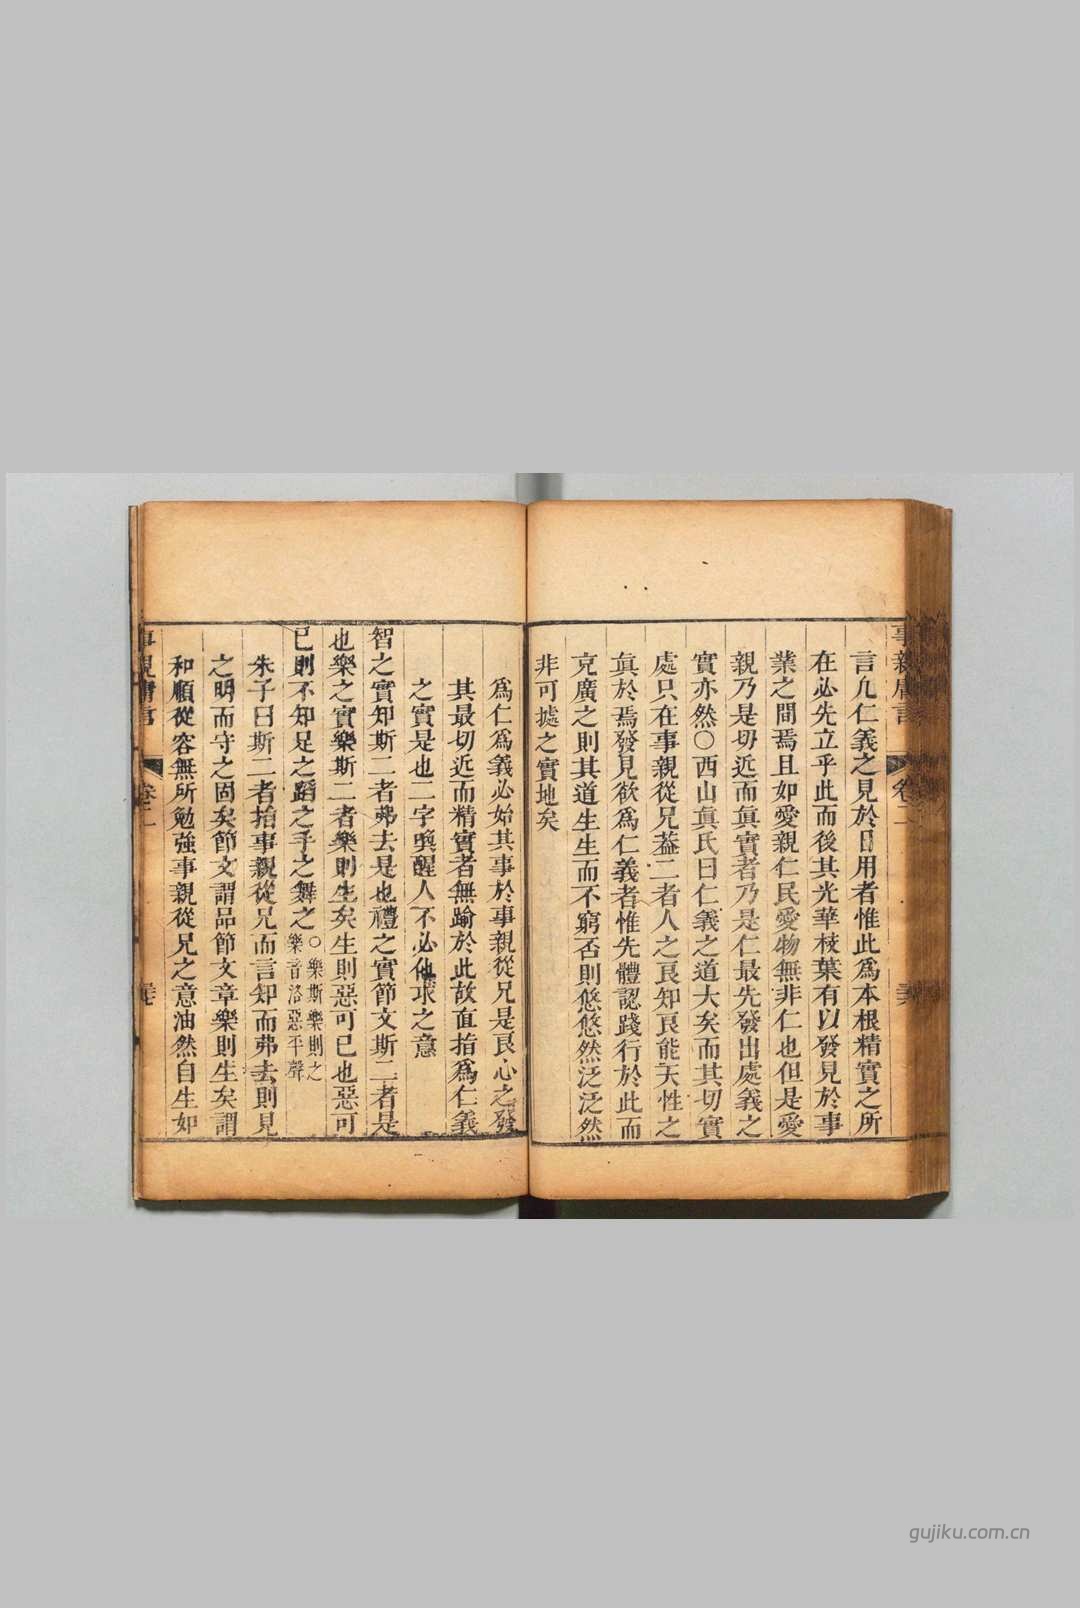 事親庸言
卷二
言凢仁義之見於日用者惟此爲本根精實之所
在必先立乎此而後其光華枝葉有以發見於事
業之間焉且如愛親仁民愛物無非仁也但是愛
親乃是切近而眞實者乃是仁最先發出處義之
實亦然〇西山眞氏曰仁義之道大矣而其切實
處只在事親從兄葢二者人之良知良能天性之
眞於焉發見欲爲仁義者惟先體認踐行於此而
充廣之則其道生生而不窮否則悠悠然泛泛然
非可據之實地矣
爲仁爲義必始其事於事親從兄是良心之發
其最切近而精實者無踰於此故直指爲仁義
之實是也二字喚醒人不必他求之意
智之實知斯二者弗去是也禮之實節文斯二者是
也樂之實樂斯二者樂則生矣生則惡可已也惡可
已則不知足之蹈之手之舞之〇樂斯樂則之
樂音洛惡平聲
朱子曰斯二者指事親從兄而言知而弗去則見
之明而守之固矣節文謂品節文章樂則生矣謂
和順從容無所勉強事親從兄之意油然自生如
事親庸言
卷二
gujiku.com.cn